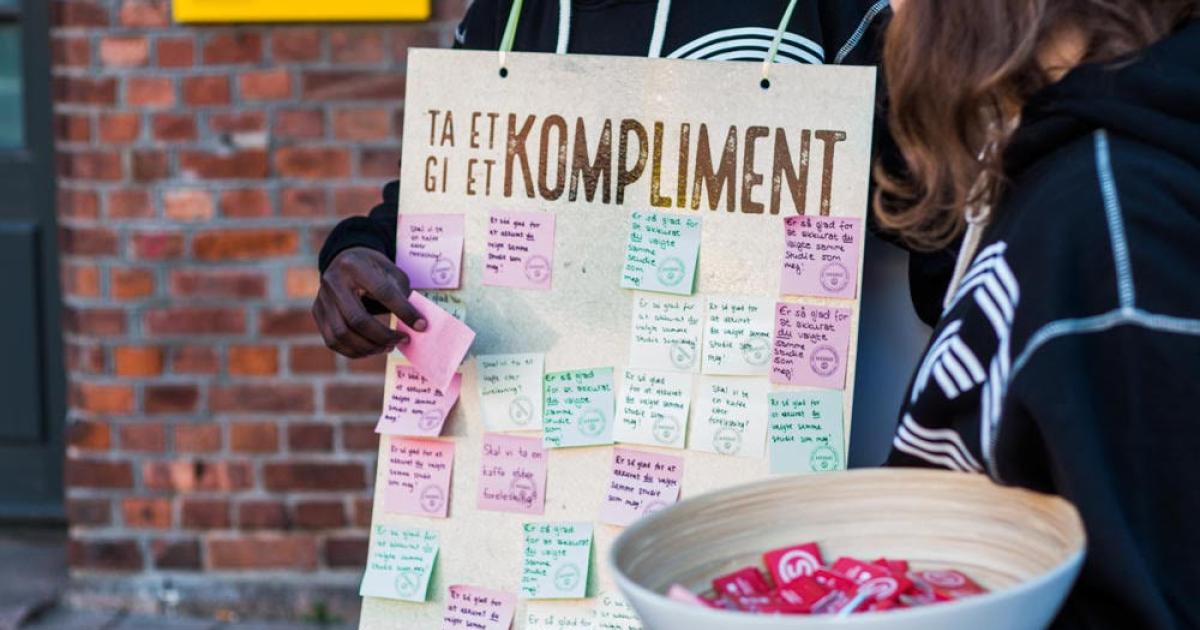 TA ET
GI ET
KOMPLIMENT
Skal vi ta
en kaffe
etter
forelesning?
Er så glad
for at
akkurat du
valgte samme
studie som
meg!
Er så glad for
at akkurat
du valgte
samme
studie
som
meg!
Er så glad for
at akkurat du
valgte samme
studie som
meg!
Er så glad for
at akkurat du
valgte samme
studie som meg!
Er så glad
for at akkurat
du valgte
samme studie
som meg!
Er så glad for
at akkurat du
valgte
samme
studie
som
meg!
Skal vi ta et
kaffe etter
forelesning?
Er så glad
for at akkurat
du valgte
samme
studie
som
meg!
Er så glad
for at akkurat
du valgte samme
studie som
meg!
Skal vi ta
en kaffe
etter
forelesning?
Er så glad
for at akkurat
du valgte samme
studie som
meg!
Er så glad
for at
akkurat du
valgte samme
studie som
meg!
Skal vi ta en
kaffe etter
forelesning?
Er så glad
for at akkurat
du valgte samme
studie som
meg!
Er så glad
for at akkurat
du valgte samme
studie som
meg!
Er så glad
for at akkurat
du valgte
samme
studie som
meg!
Er så glad
for at akkurat
du valgte samme
Er så glad for